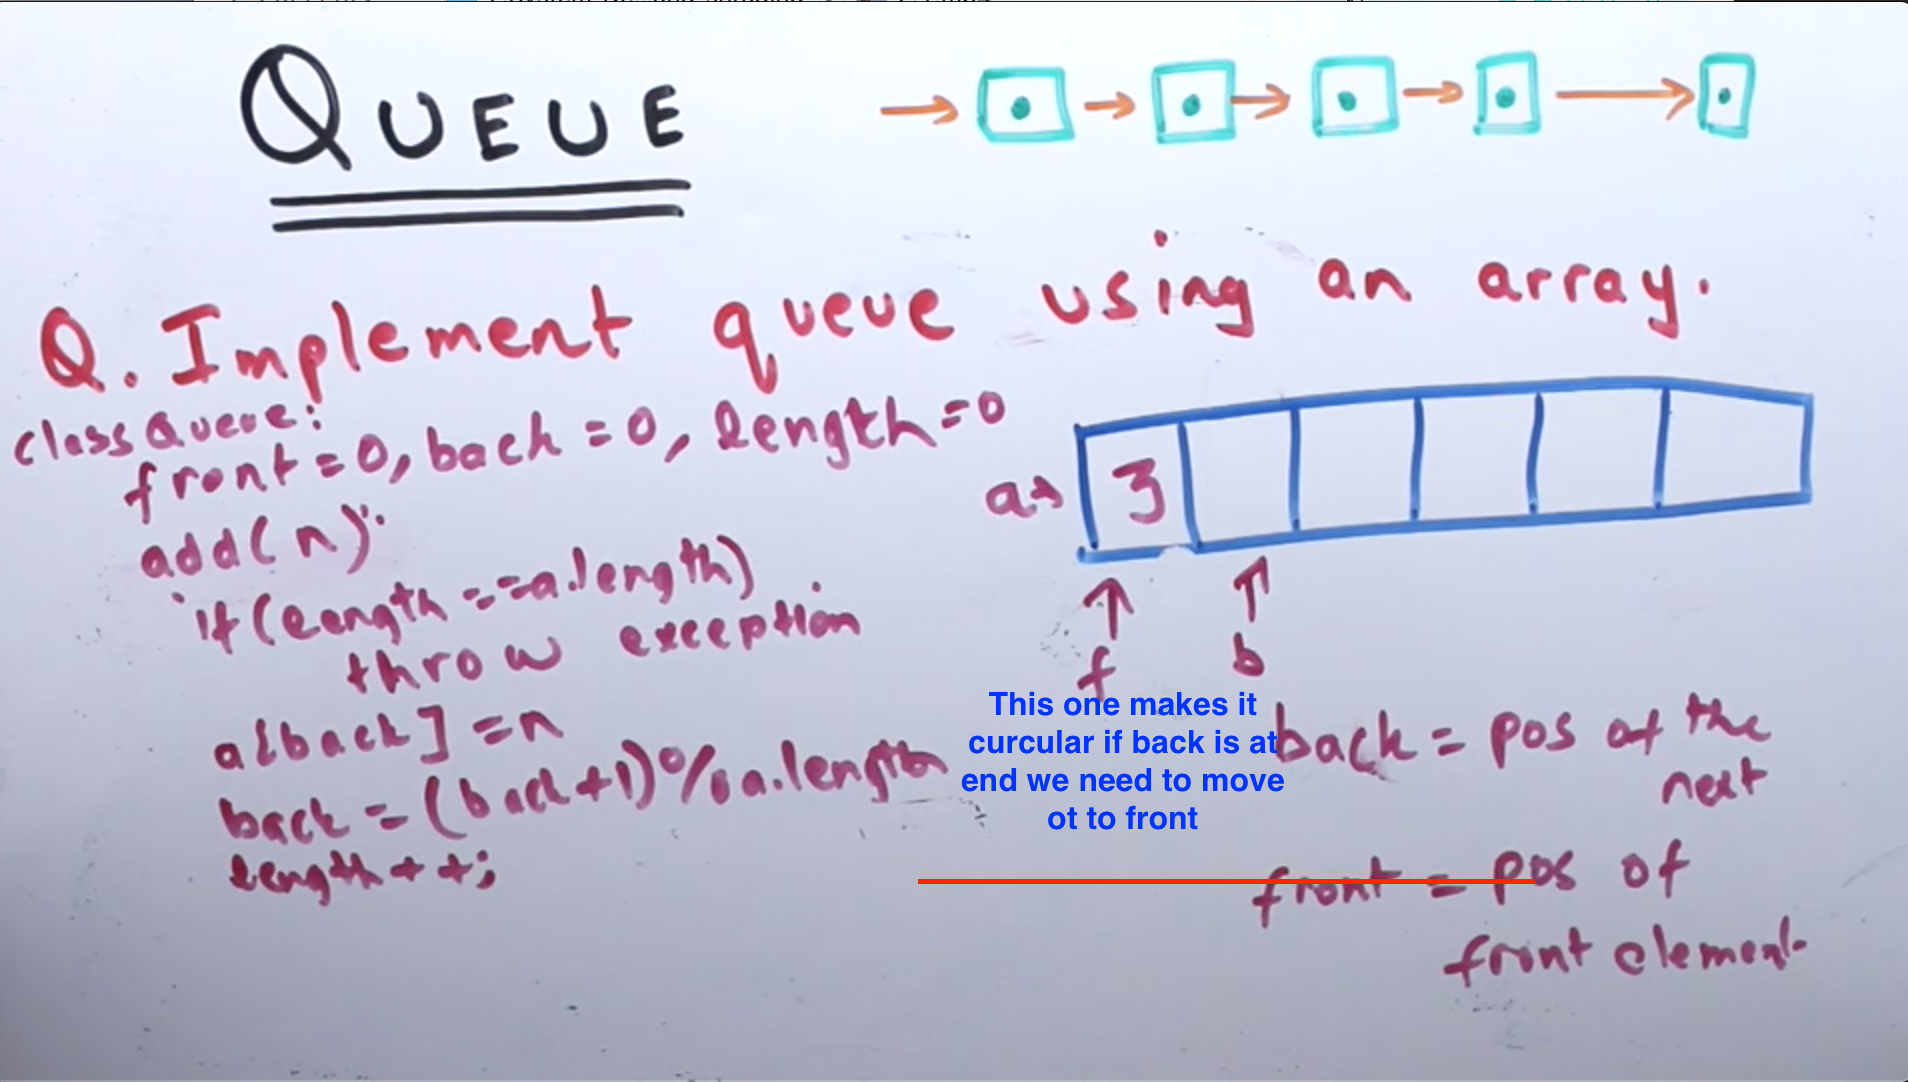 QUEUE
Q. Implement queue using an array.
class Queue:
front=0, back=0, length=0
add(n):
if(length==a.length)
throw exception
a[back]=n
back=(back+1)%a.length
length++;
a→
3
f
b
This one makes it
curcular if back is at
end we need to move
ot to front
back = pos of the
next
front = pos of
front element